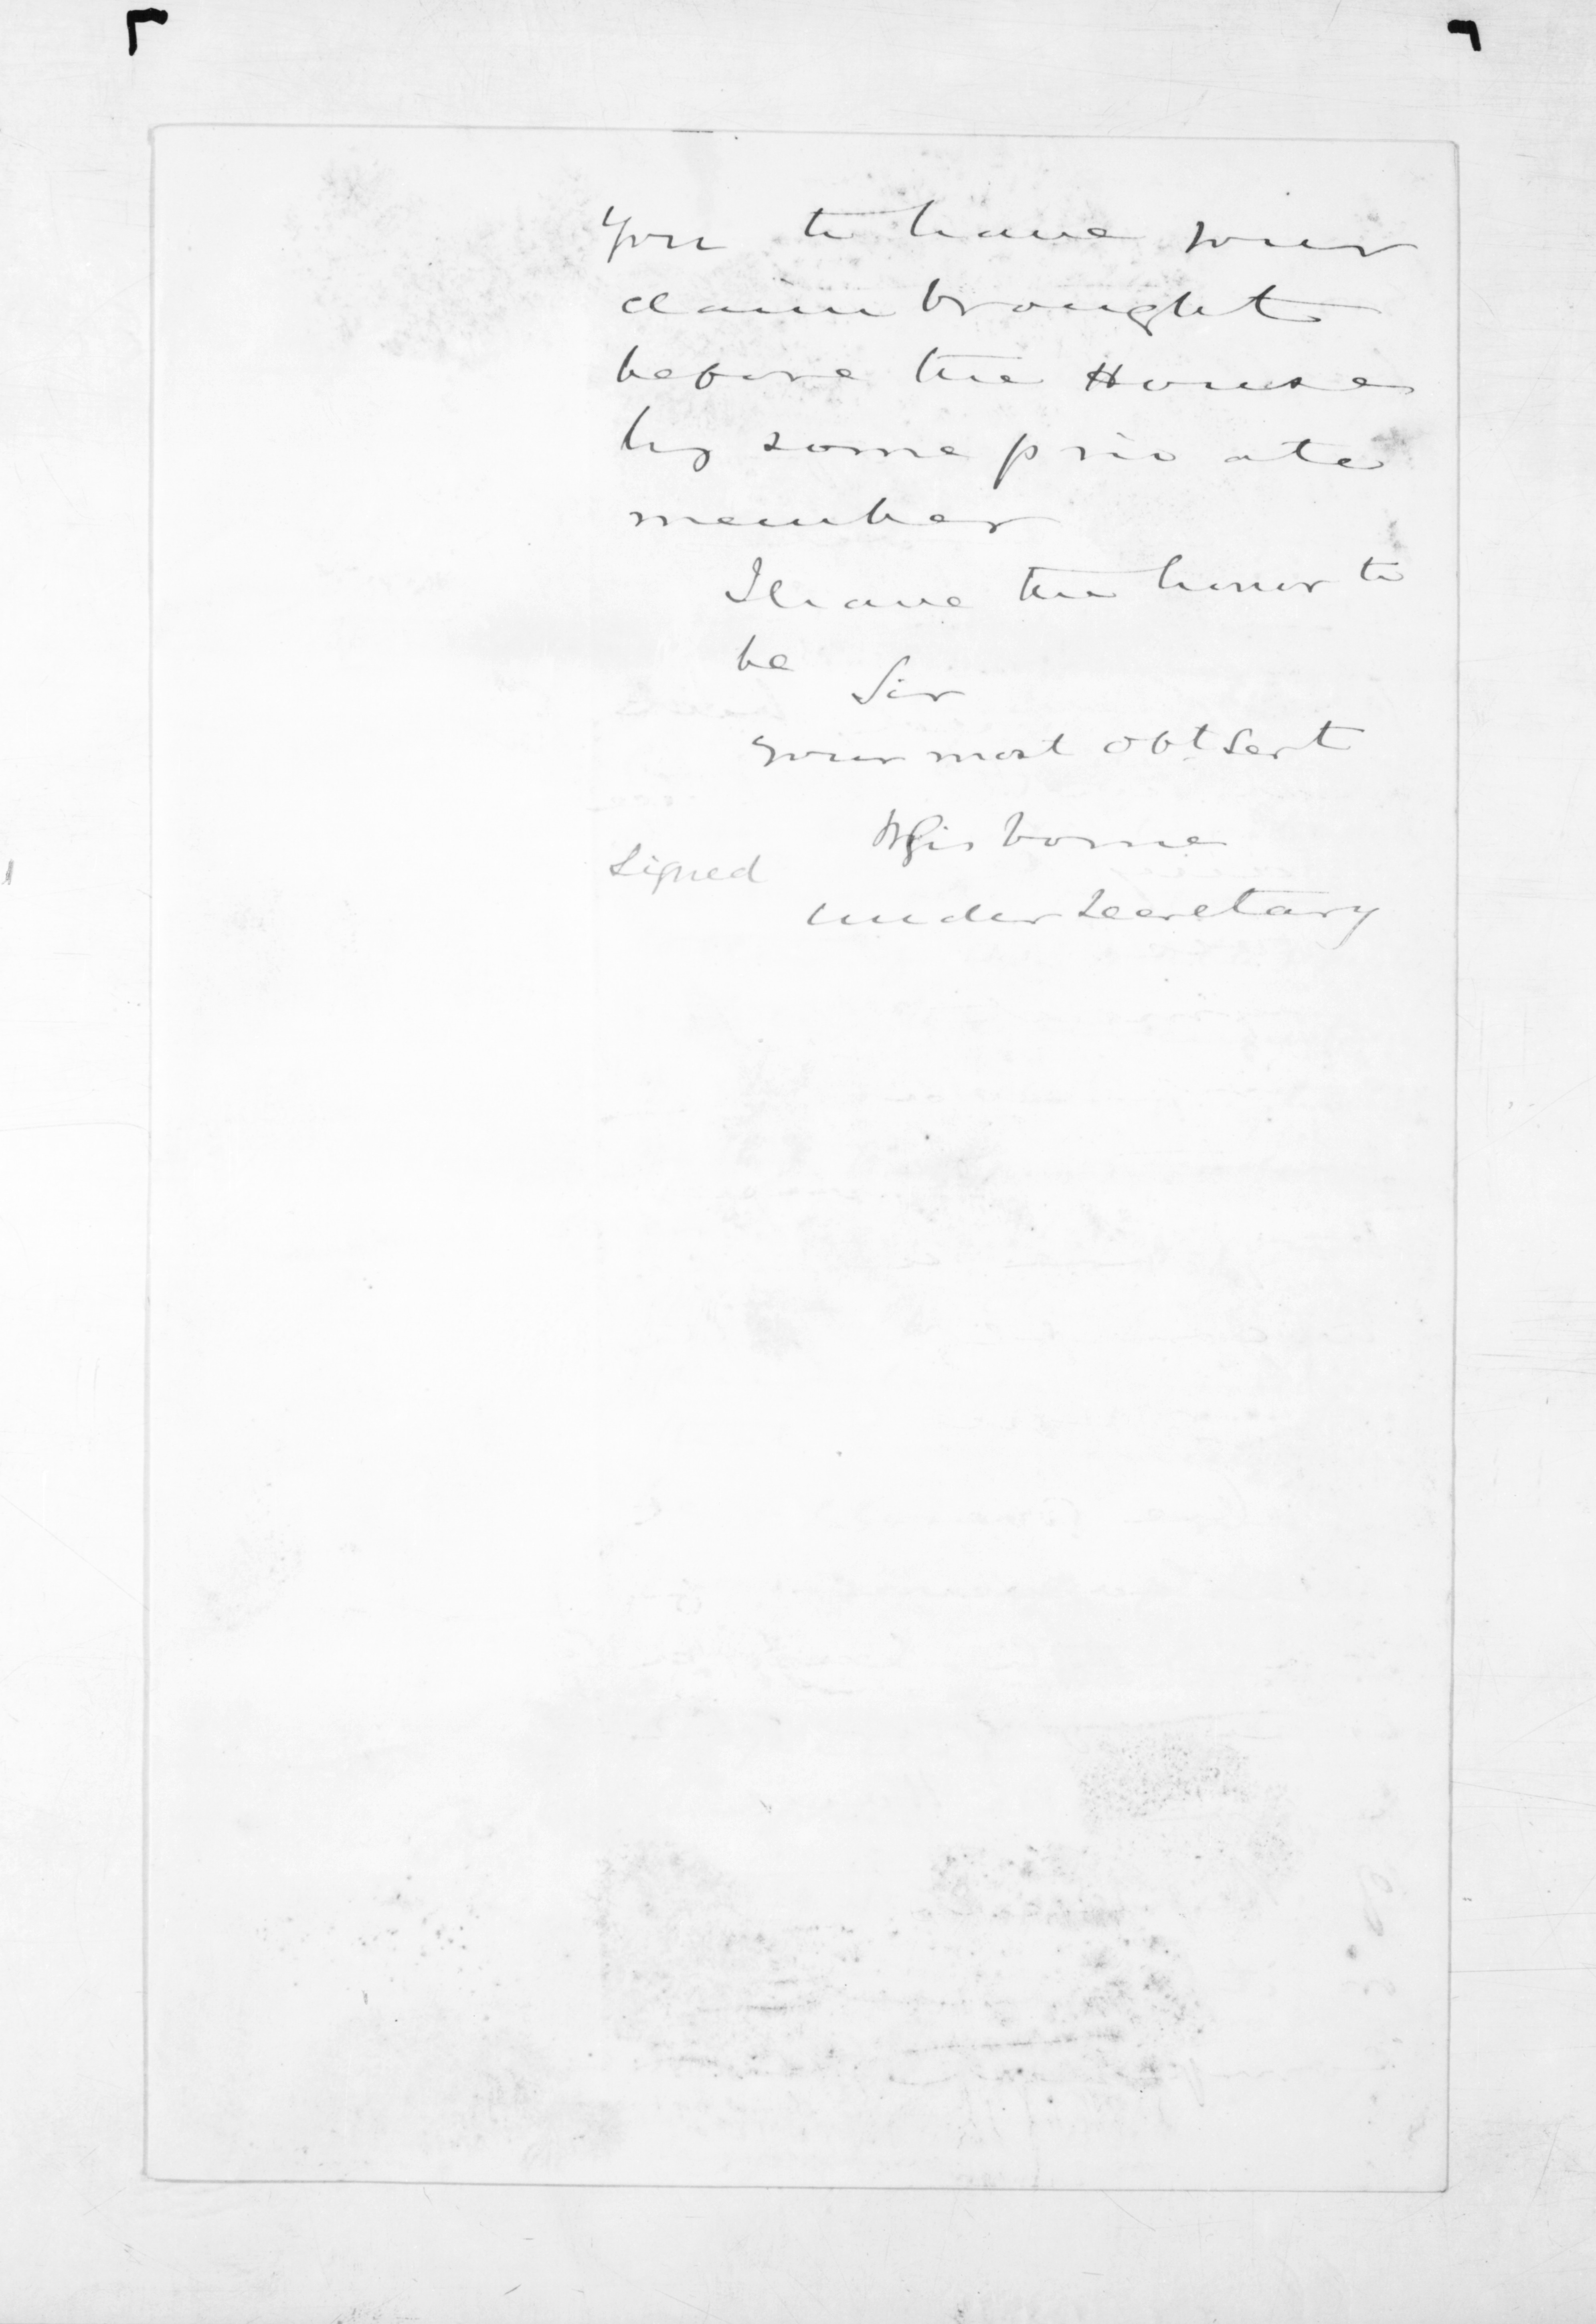 You to have your
claim brought
before the House
by some private
member
I have the honor to
be
Sir
your most obt Sert
Signed WGisborne
under Secretary